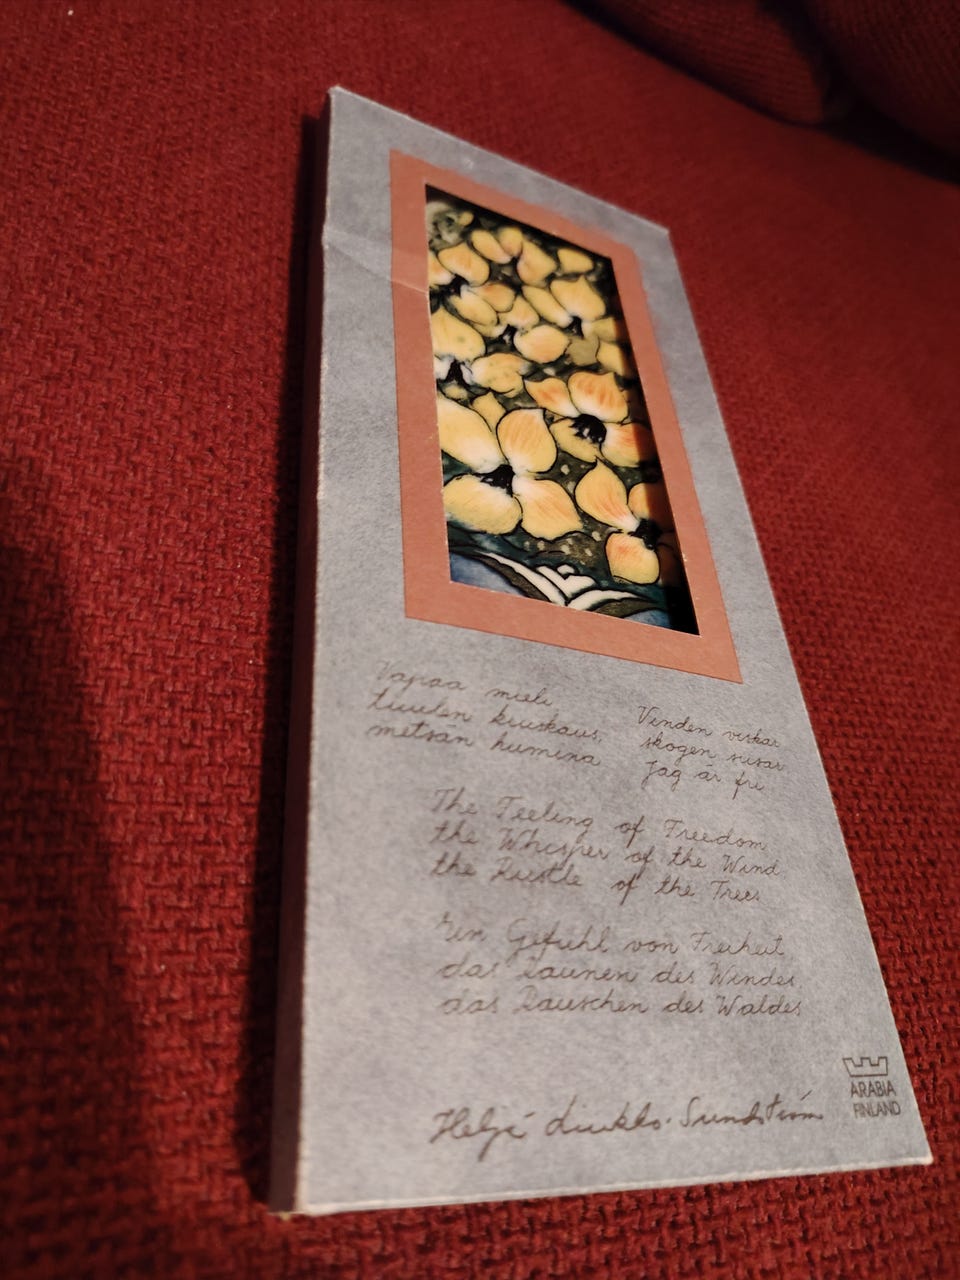 Vapaa mieli
tuulen kuiskaus,
metsän humina
Vinden viskar
skogen susar
Jag är fri
The Feeling of Freedom
the Whisper of the Wind
the Rustle of the Trees
Ein Gefühl von Freiheit
das Raunen des Windes
das Rauschen des Waldes
Heljä Liukko-Sundström
ARABIA
FINLAND